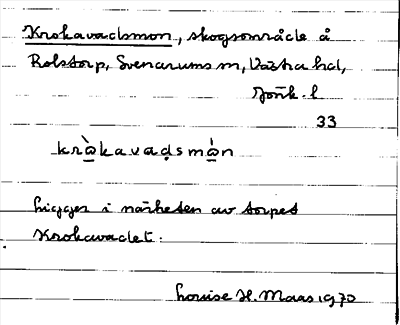 Krokavadsmon, skogsområde å
Rolstorp, Svenarums sn, Västra hd,
Jönk. l
33
krὰ̲kavaḍsmὰ̲n
Ligger i närheten av torpet
Krokavadet.
Louise H. Maas 1970